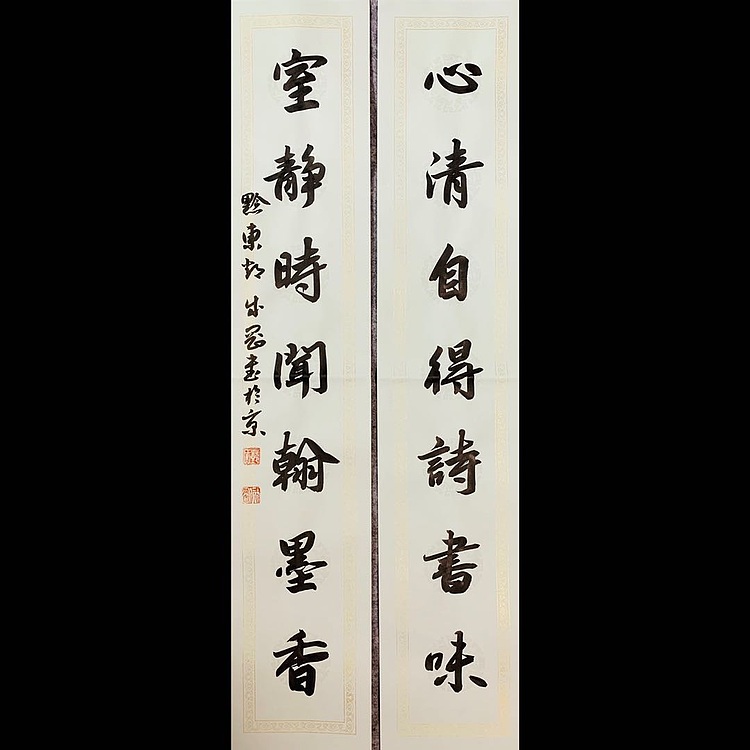 心清自得詩書味
室靜時聞翰墨香
黔東 成罡書於京